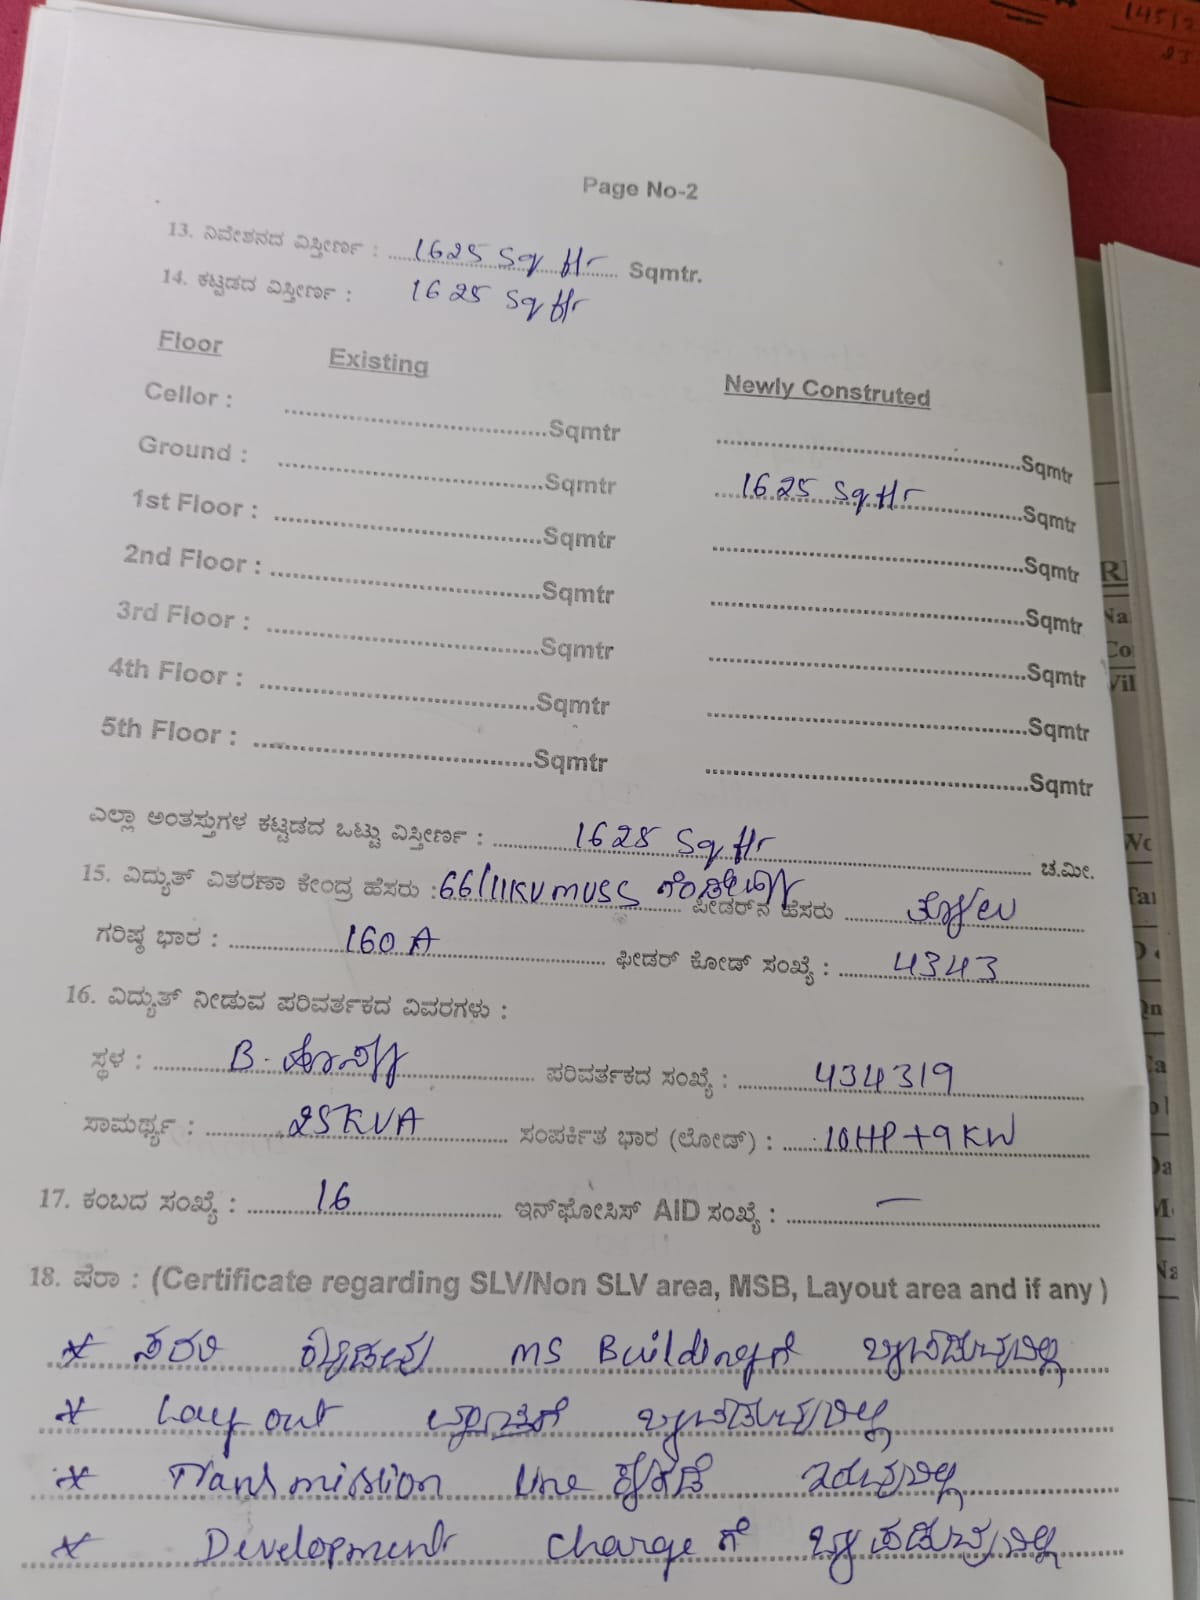 Page No-2
13. ನಿವೇಶನದ ವಿಸ್ತೀರ್ಣ : 1625 Sq ftr Sqmtr.
14. ಕಟ್ಟಡದ ವಿಸ್ತೀರ್ಣ : 1625 Sq ftr
Floor Existing Newly Construted
Cellor : Sqmtr Sqmtr
Ground : Sqmtr 1625 Sq ftr Sqmtr
1st Floor : Sqmtr Sqmtr
2nd Floor : Sqmtr Sqmtr
3rd Floor : Sqmtr Sqmtr
4th Floor : Sqmtr Sqmtr
5th Floor : Sqmtr Sqmtr
ಎಲ್ಲಾ ಅಂತಸ್ತುಗಳ ಕಟ್ಟಡದ ಒಟ್ಟು ವಿಸ್ತೀರ್ಣ : 1625 Sq ftr ಚ.ಮೀ.
15. ವಿದ್ಯುತ್ ವಿತರಣಾ ಕೇಂದ್ರ ಹೆಸರು : 66/11KV MUSS ಫೀಡರ್‌ನ ಹೆಸರು
ಗರಿಷ್ಠ ಭಾರ : 160 A ಫೀಡರ್ ಕೋಡ್ ಸಂಖ್ಯೆ : 4343
16. ವಿದ್ಯುತ್ ನೀಡುವ ಪರಿವರ್ತಕದ ವಿವರಗಳು :
ಸ್ಥಳ : B. ಪರಿವರ್ತಕದ ಸಂಖ್ಯೆ : 434319
ಸಾಮರ್ಥ್ಯ : 25KVA ಸಂಪರ್ಕಿತ ಭಾರ (ಲೋಡ್) : 10HP+9KW
17. ಕಂಬದ ಸಂಖ್ಯೆ : 16 ಇನ್‌ಫೋಸಿಸ್ AID ಸಂಖ್ಯೆ : —
18. ಷರಾ : (Certificate regarding SLV/Non SLV area, MSB, Layout area and if any )
* ಸದರಿ ಕಟ್ಟಡವು MS Buildingಗೆ ಒಳಪಡುವುದಿಲ್ಲ
* Layout ವ್ಯಾಪ್ತಿಗೆ ಒಳಪಡುವುದಿಲ್ಲ
* Transmission line ಕೆಳಗಡೆ ಇರುವುದಿಲ್ಲ
* Development chargeಗೆ ಒಳಪಡುವುದಿಲ್ಲ